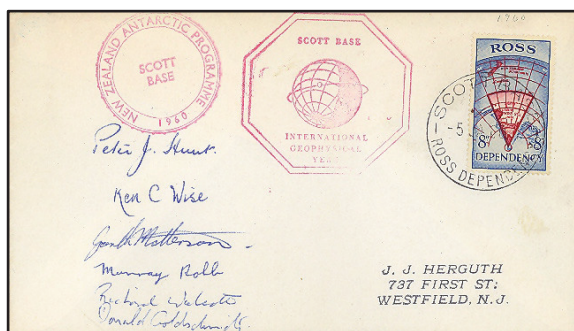 1960
NEW ZEALAND ANTARCTIC PROGRAMME
SCOTT
BASE
1960
SCOTT BASE
INTERNATIONAL
GEOPHYSICAL
YEAR
ROSS
8d 8d
DEPENDENCY
SCOTT
-5
ROSS DEPENDENCY
Peter J. Hunt.
Ken C Wise
Garth Matterson
Murray Robb
Richard Walcott
Donald Goldschmidt
J. J. HERGUTH
737 FIRST ST;
WESTFIELD, N.J.